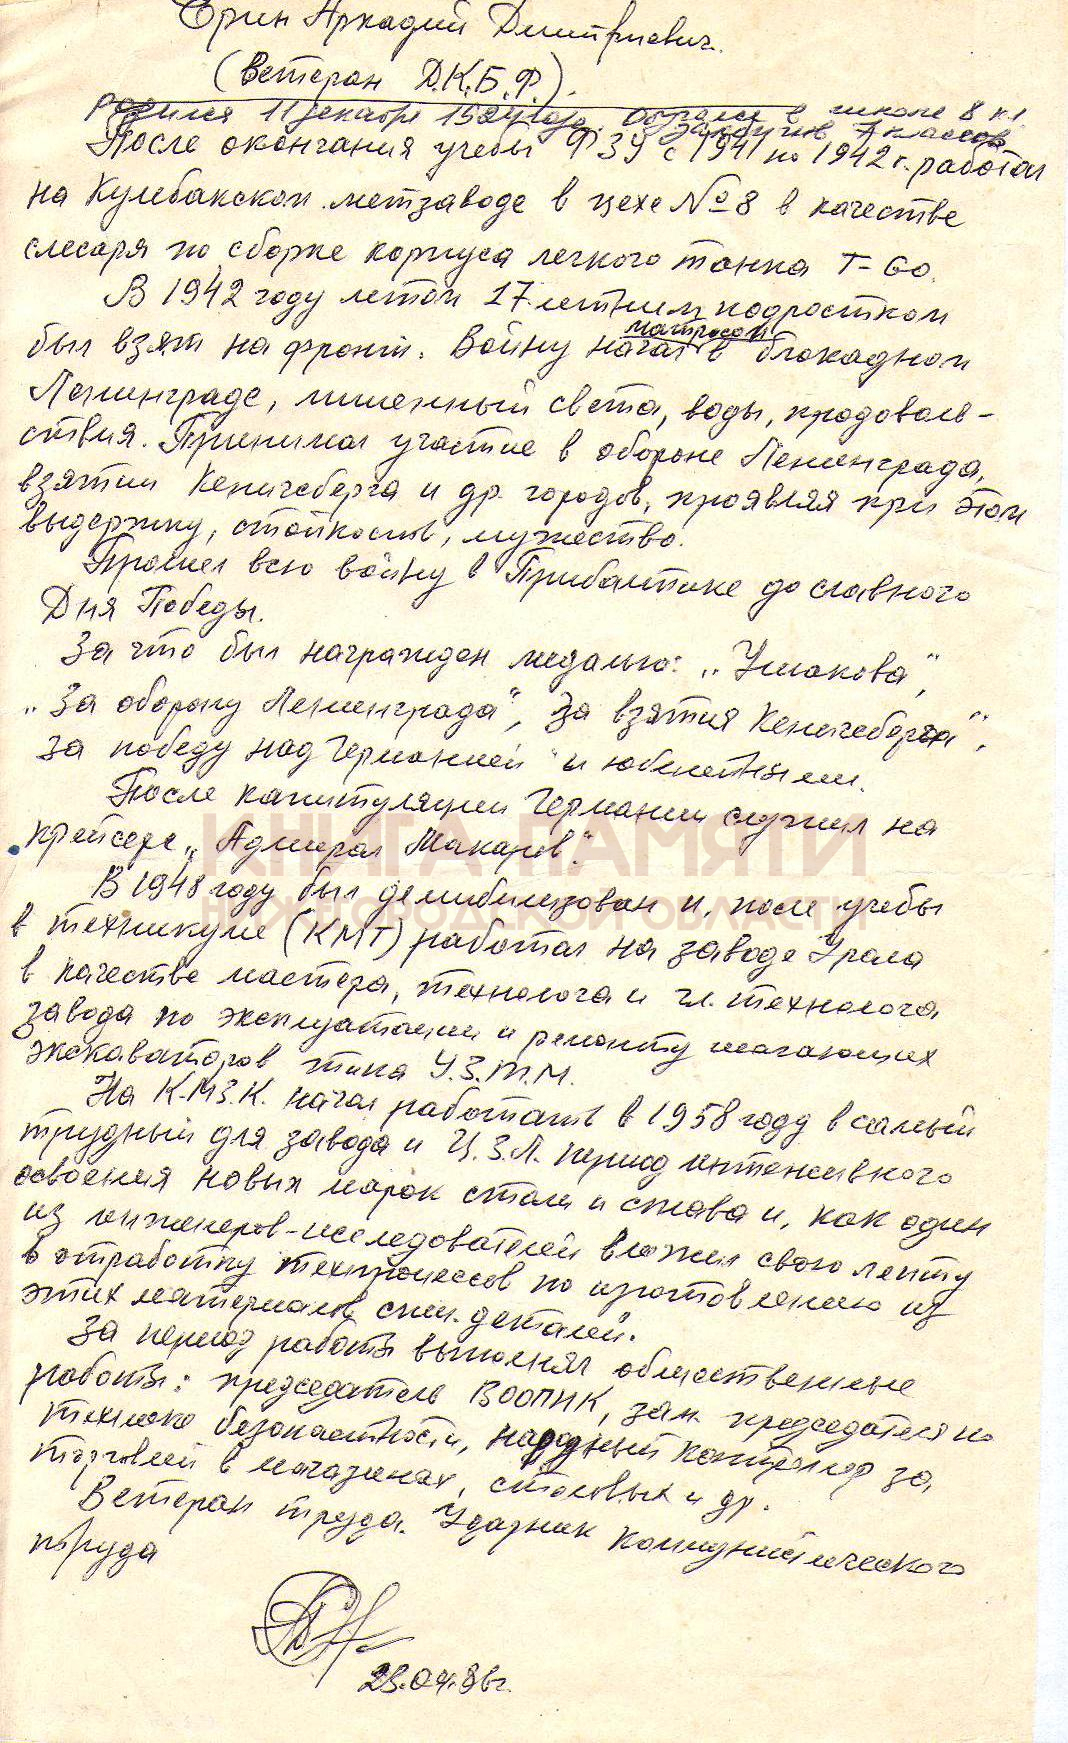 Ерин Аркадий Дмитриевич.
(ветеран Д.К.Б.Ф.).
Родился 11 декабря в школе 8 кл.
закончив 7 классов
После окончания учебы ФЗУ с 1941 по 1942 г. работал
на Кулебакском метзаводе в цехе № 8 в качестве
слесаря по сборке корпуса легкого танка Т-60.
В 1942 году летом 17 летним подростком
был взят на фронт. Войну начал матросом в блокадном
Ленинграде, лишенный света, воды, продоволь-
ствия. Принимал участие в обороне Ленинграда,
взятии Кенигсберга и др. городов, проявляя при этом
выдержку, стойкость, мужество.
Прошел всю войну в Прибалтике до славного
Дня Победы.
За что был награжден медалью: „Ушакова",
„За оборону Ленинграда", За взятия Кенигсберга",
За победу над Германией" и юбилейными.
После капитуляции Германии служил на
крейсере „Адмирал Макаров".
КНИГА ПАМЯТИ
НИЖЕГОРОДСКОЙ ОБЛАСТИ
В 1948 году был демибилизован и, после учебы
в техникуме (КМТ) работал на заводе Урала
в качестве мастера, технолога и гл. технолога
завода по эксплуатации и ремонту шагающих
экскаваторов типа У.З.Т.М.
На К.М.З.К. начал работать в 1958 году в самый
трудный для завода и Ц.З.Л. период интенсивного
освоения новых марок стали и сплава и, как один
из инженеров-исследователей вложил свою лепту
в отработку техпроцессов по изготовлению из
этих материалов спец. деталей.
За период работы выполнял общественные
работы: председатель ВООПИК, зам. председателя по
технике безопастности, народный контролер за
торговлей в магазинах, столовых и др.
Ветеран труда. Ударник Коммунистического
труда
23.04.86г.